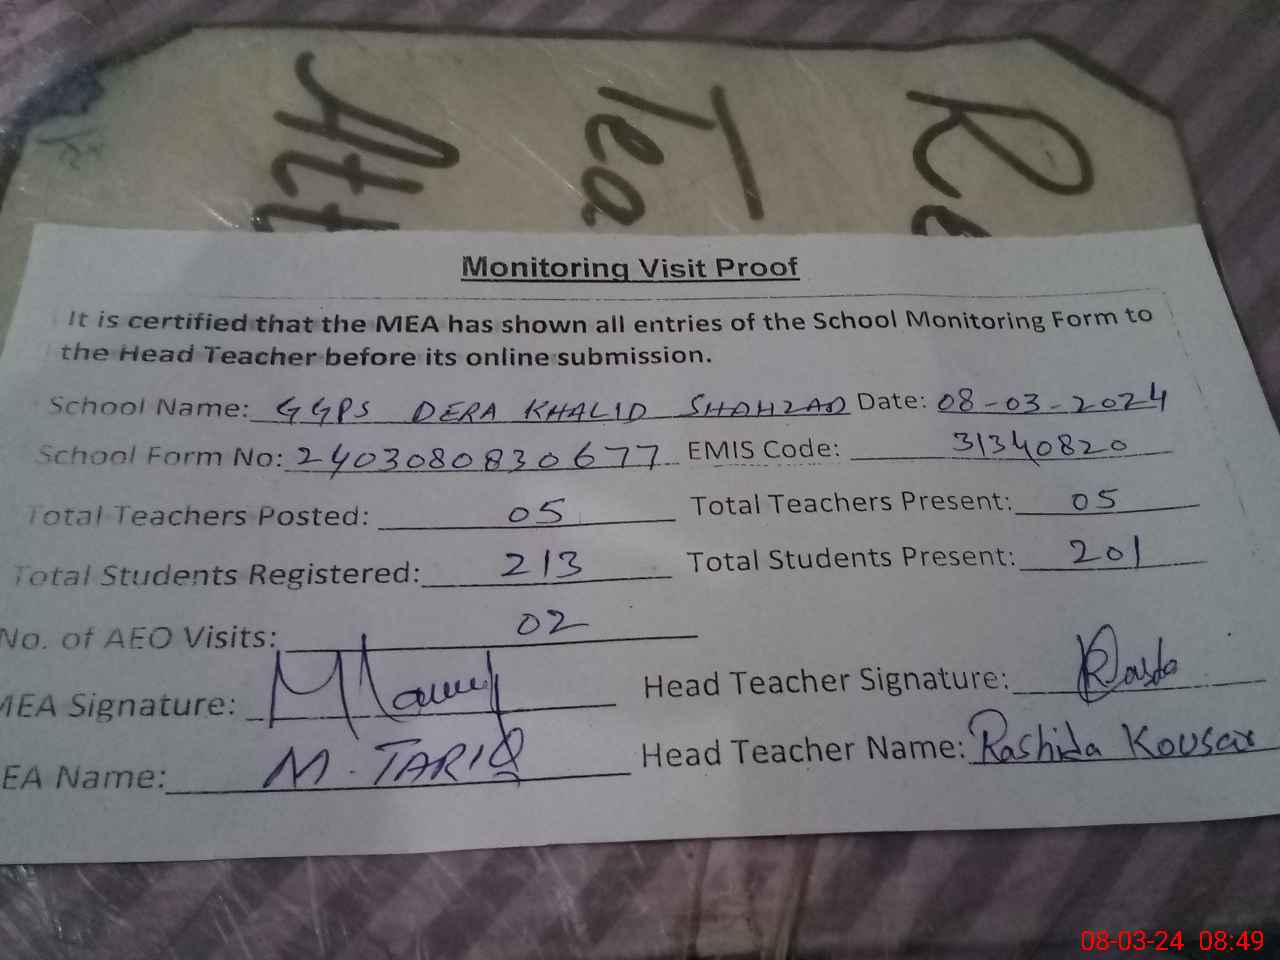 Att
Tea
Re
Monitoring Visit Proof
It is certified that the MEA has shown all entries of the School Monitoring Form to
the Head Teacher before its online submission.
School Name: GGPS DERA KHALID SHAHZAD Date: 08-03-2024
School Form No: 2403080830677 EMIS Code: 31340820
Total Teachers Posted: 05 Total Teachers Present: 05
Total Students Registered: 213 Total Students Present: 201
No. of AEO Visits: 02
MEA Signature: Head Teacher Signature:
EA Name: M. TARIQ Head Teacher Name: Rashida Kousar
08-03-24 08:49